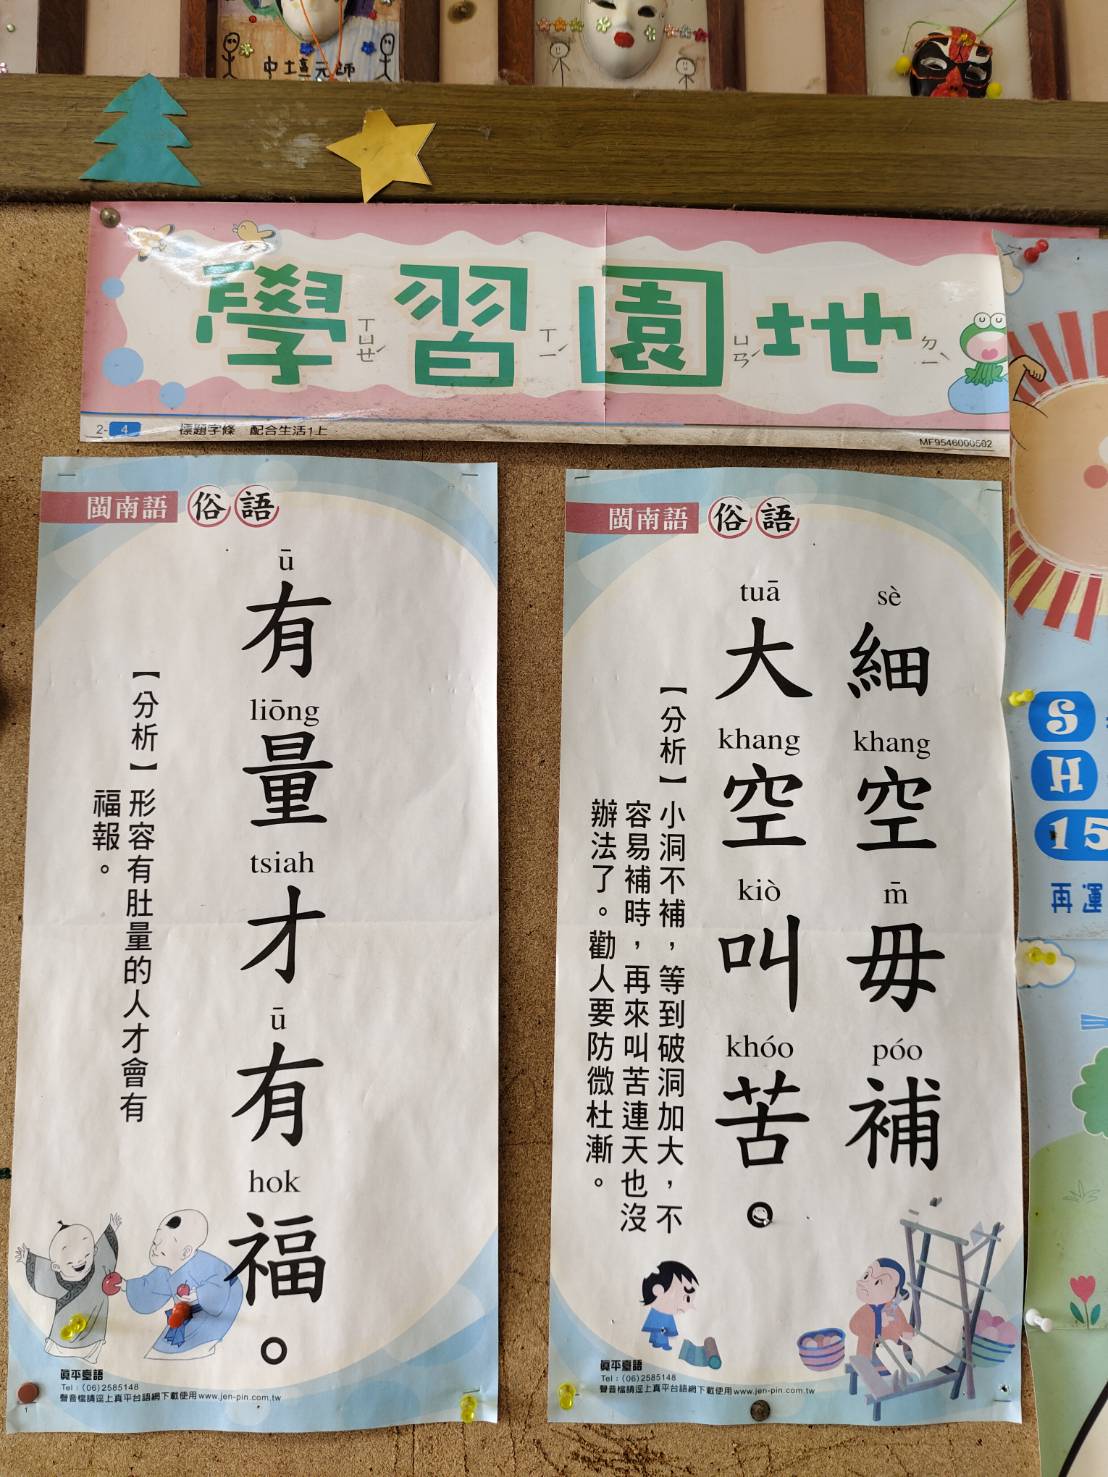 中壇元帥
學習園地
ㄒㄩㄝˊ ㄒㄧˊ ㄩㄢˊ ㄉㄧˋ
2-4 標題字條 配合生活1上
MF9546000502
閩南語 俗語
ū liōng tsiah ū hok
有量才有福。
【分析】形容有肚量的人才會有
福報。
真平臺語
Tel：(06)2585148
聲音檔請逕上真平台語網下載使用www.jen-pin.com.tw
閩南語 俗語
sè khang m̄ póo
細空毋補
tuā khang kiò khóo
大空叫苦。
【分析】小洞不補，等到破洞加大，不
容易補時，再來叫苦連天也沒
辦法了。勸人要防微杜漸。
真平臺語
Tel：(06)2585148
聲音檔請逕上真平台語網下載使用www.jen-pin.com.tw
S
H
15
再運